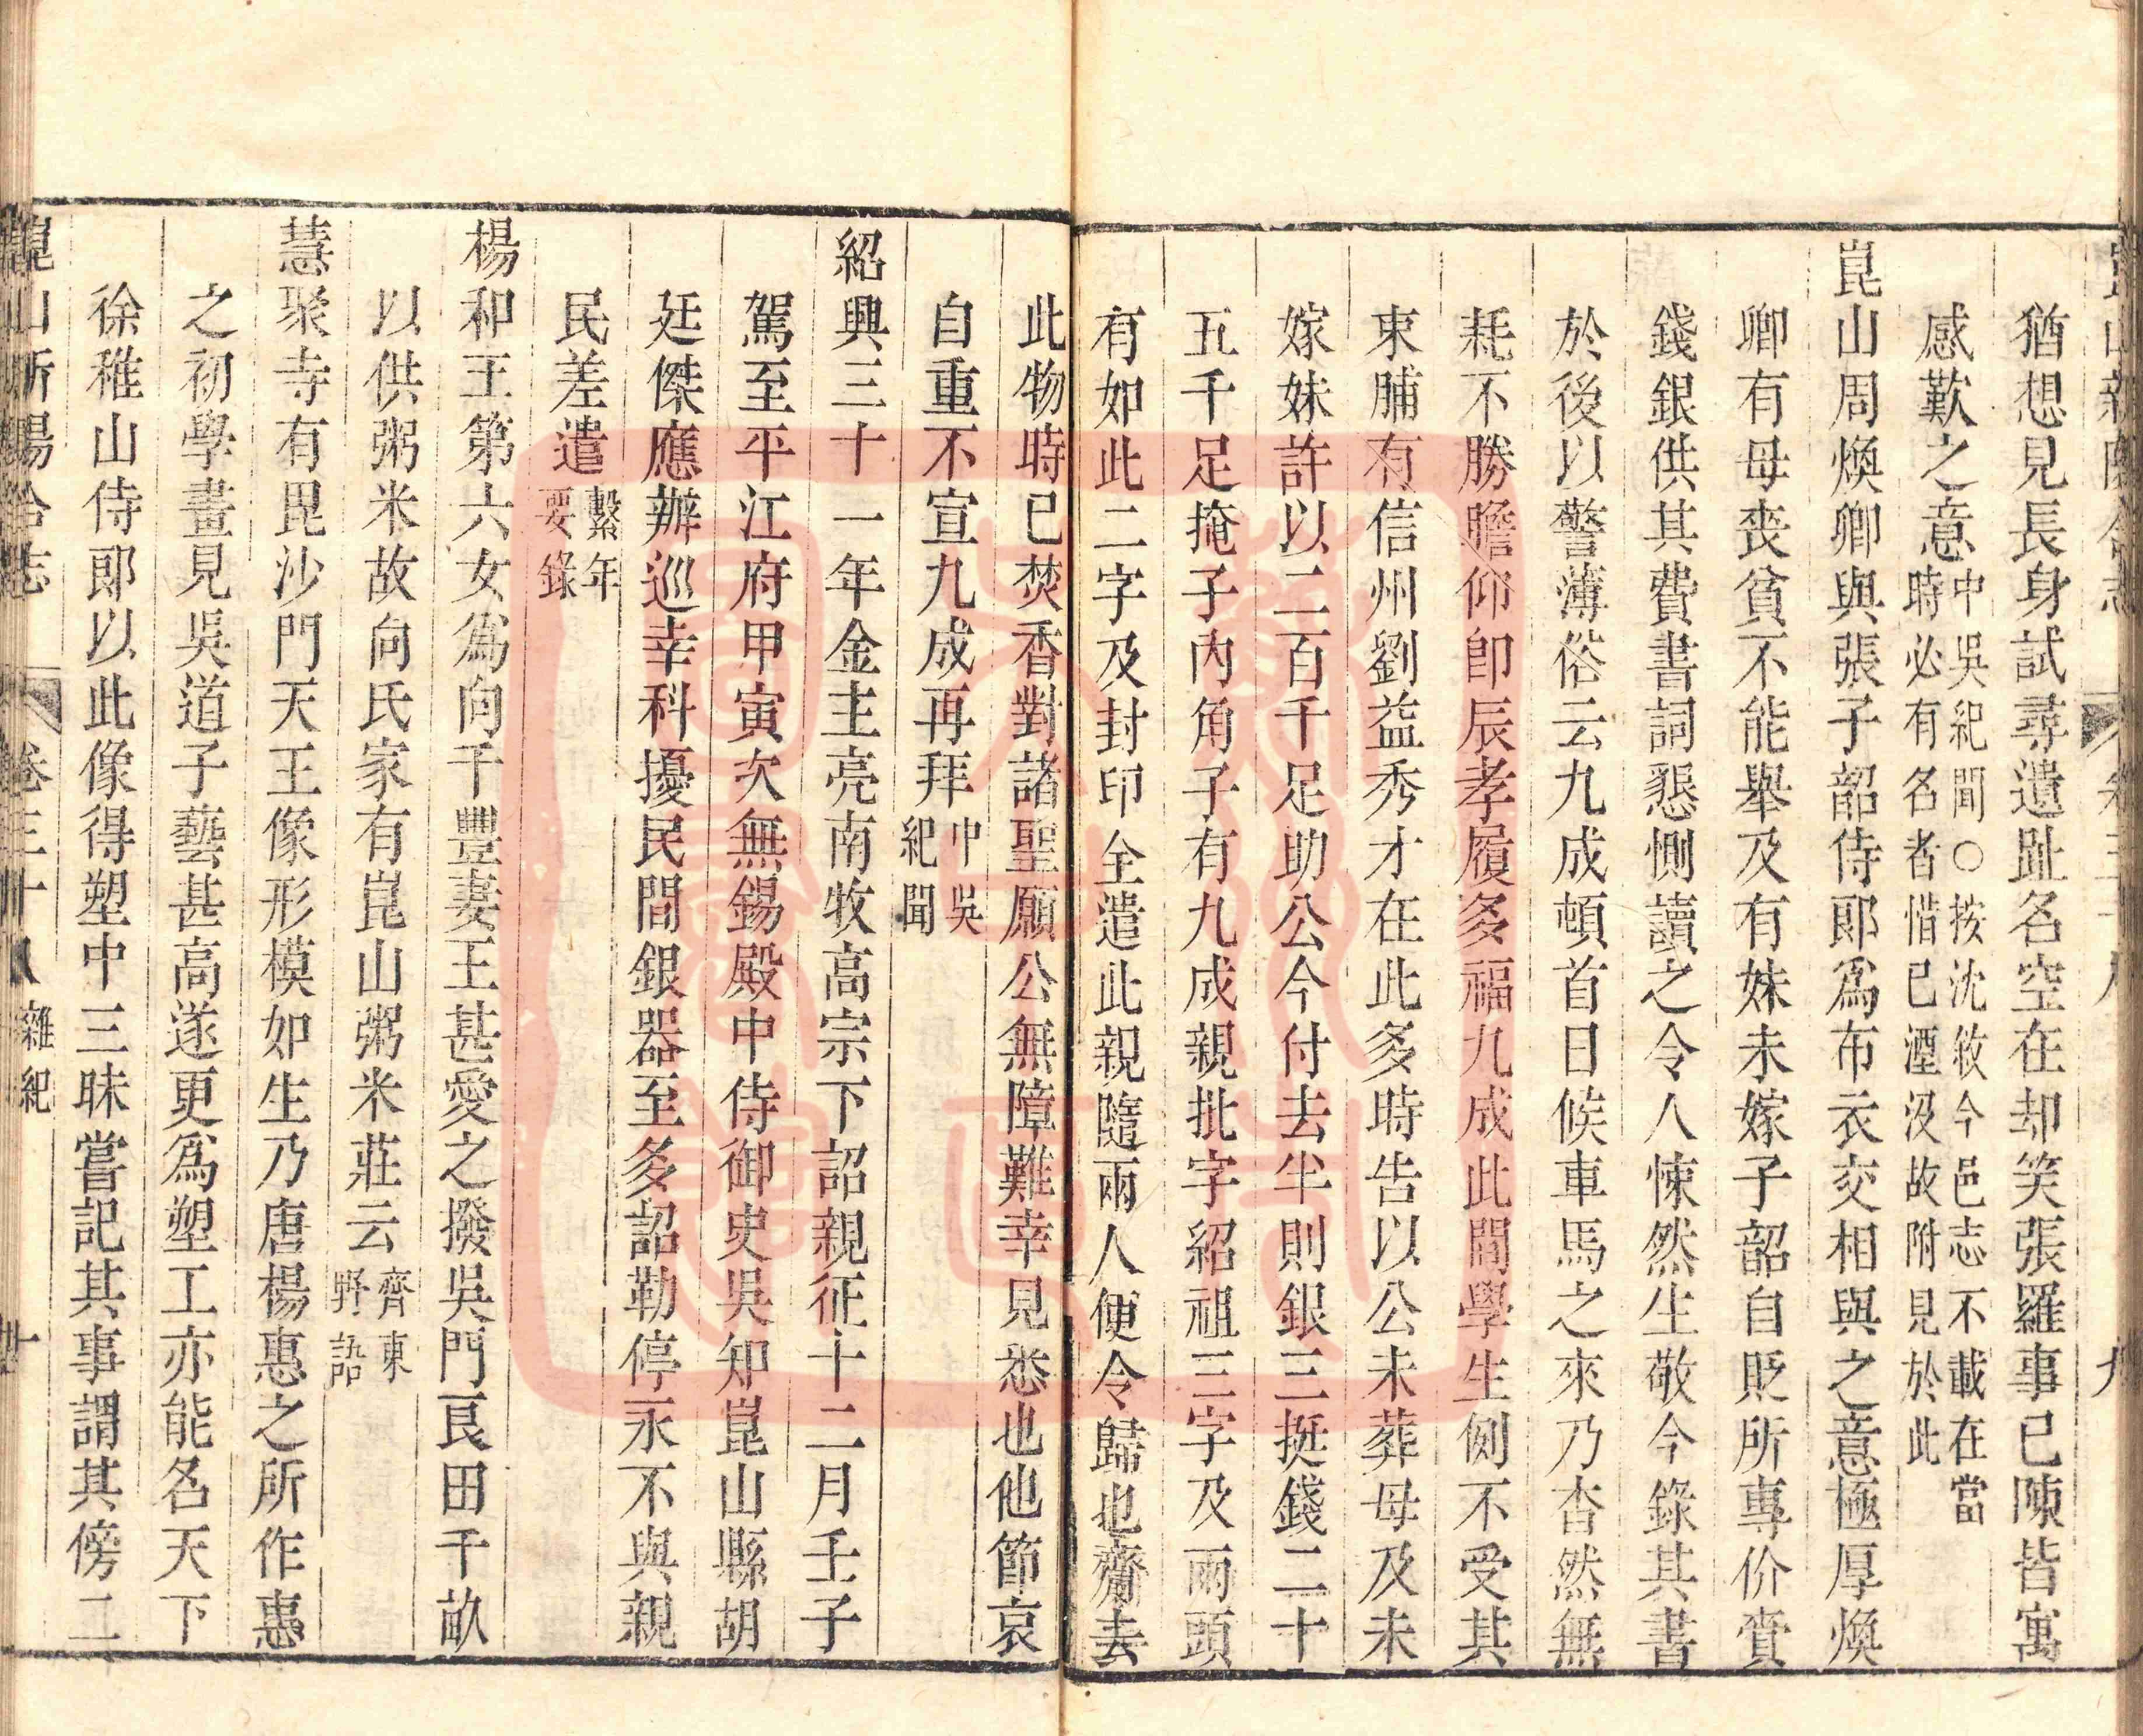 猶想見長身試尋遺趾名空在却笑張羅事已陳皆寓
感歎之意中吳紀聞○按沈敘今邑志不載在當
時必有名者惜已湮沒故附見於此
崑山周煥卿與張子韶侍郎爲布衣交相與之意極厚煥
卿有母喪貧不能舉及有妹未嫁子韶自貶所專价賫
錢銀供其費書詞懇惻讀之令人悚然生敬今錄其書
於後以警薄俗云九成頓首日候車馬之來乃杳然無
耗不勝瞻仰卽辰孝履多福九成此間學生例不受其
束脯有信州劉益秀才在此多時告以公未葬母及未
嫁妹許以二百千足助公今付去半則銀三挺錢二十
五千足掩子內角子有九成親批字紹祖三字及兩頭
有如此二字及封印全遣此親隨兩人便令歸也齋去
此物時已焚香對諸聖願公無障難幸見悉也他節哀
自重不宣九成再拜中吳
紀聞
紹興三十一年金主亮南牧高宗下詔親征十二月壬子
駕至平江府甲寅次無錫殿中侍御史吳知崑山縣胡
廷傑應辦巡幸科擾民間銀器至多詔勒停永不與親
民差遣繫年
要錄
楊和王第六女爲向千豐妻王甚愛之撥吳門良田千畝
以供粥米故向氏家有崑山粥米莊云齊東
野語
慧聚寺有毘沙門天王像形模如生乃唐楊惠之所作惠
之初學畫見吳道子藝甚高遂更爲塑工亦能名天下
徐稚山侍郎以此像得塑中三昧嘗記其事謂其傍二
崑山新陽合志
卷三十八
雜紀
十